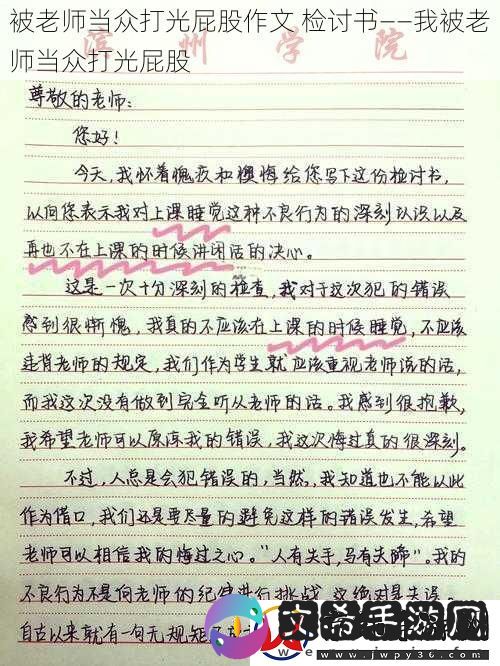 被老师当众打光屁股作文 检讨书——我被老
师当众打光屁股
滨州学院
尊敬的老师：
您好！
今天，我怀着愧疚和懊悔给您写下这份检讨书，
以向您表示我对上课睡觉这种不良行为的深刻认识以及
再也不在上课的时候讲闭话的决心。
这是一次十分深刻的检查，我对于这次犯的错误
感到很惭愧，我真的不应该在上课的时候睡觉，不应该
违背老师的规定，我们作为学生就应该重视老师说的话，
而我这次没有做到完全听从老师的话。我感到很抱歉，
我希望老师可以原谅我的错误，我这次悔过真的很深刻。
不过，人总是会犯错误的，当然，我知道也不能以此
作为借口，我们还是要尽量的避免这样的错误发生，希望
老师可以相信我的悔过之心。“人有失手，马有失蹄”。我的
不良行为不是向老师的纪律进行挑战，这绝对是失误。
自古以来就有一句无规矩
文希手游网
www.jwpy36.com